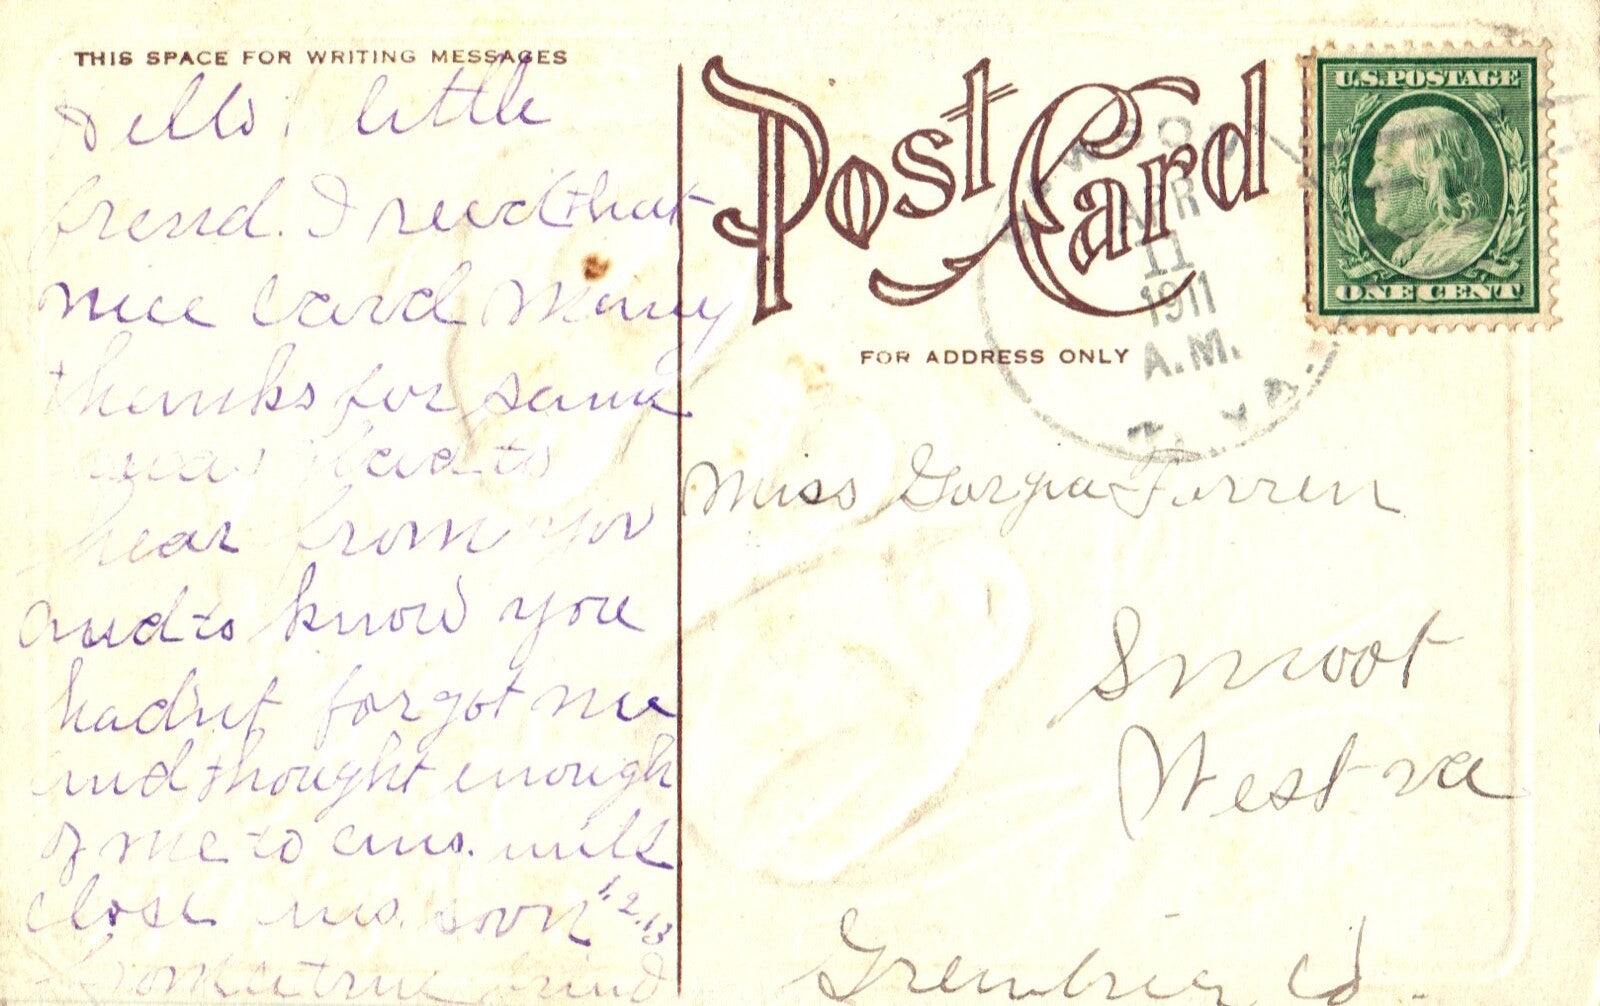 THIS SPACE FOR WRITING MESSAGES
Hello! little
frend. I recd that
nice card Meny
thanks for same
was glad to
hear from you
and to know you
hadnt forgot me
and thought enough
of me to ans. will
close ans. soon
1. 2. 13
From a true frind
Post Card
U.S. POSTAGE
ONE CENT
APR
11
1911
A.M.
W.VA.
FOR ADDRESS ONLY
Miss Gorgia Forren
Smoot
West va
Grenbrier Co.